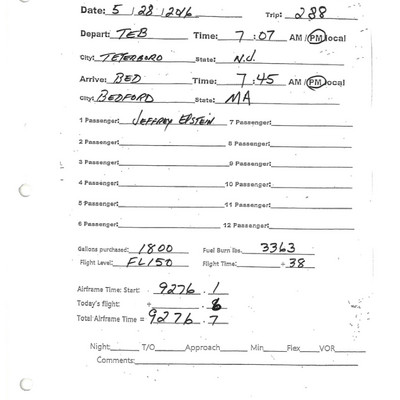 Date: 5 / 28 / 2016 Trip: 288
Depart: TEB Time: 7 : 07 AM / PM local
City: TETERBORO State: N.J.
Arrive: BED Time: 7 : 45 AM / PM local
City: BEDFORD State: MA
1 Passenger: JEFFREY EPSTEIN 7 Passenger:
2 Passenger: 8 Passenger:
3 Passenger: 9 Passenger:
4 Passenger: 10 Passenger:
5 Passenger: 11 Passenger:
6 Passenger: 12 Passenger:
Gallons purchased: 1800 Fuel Burn lbs. 3363
Flight Level: FL150 Flight Time: + 38
Airframe Time: Start: 9276 . 1
Today's flight: + . 6
Total Airframe Time = 9276 . 7
Night: T/O Approach Min Flex VOR
Comments: